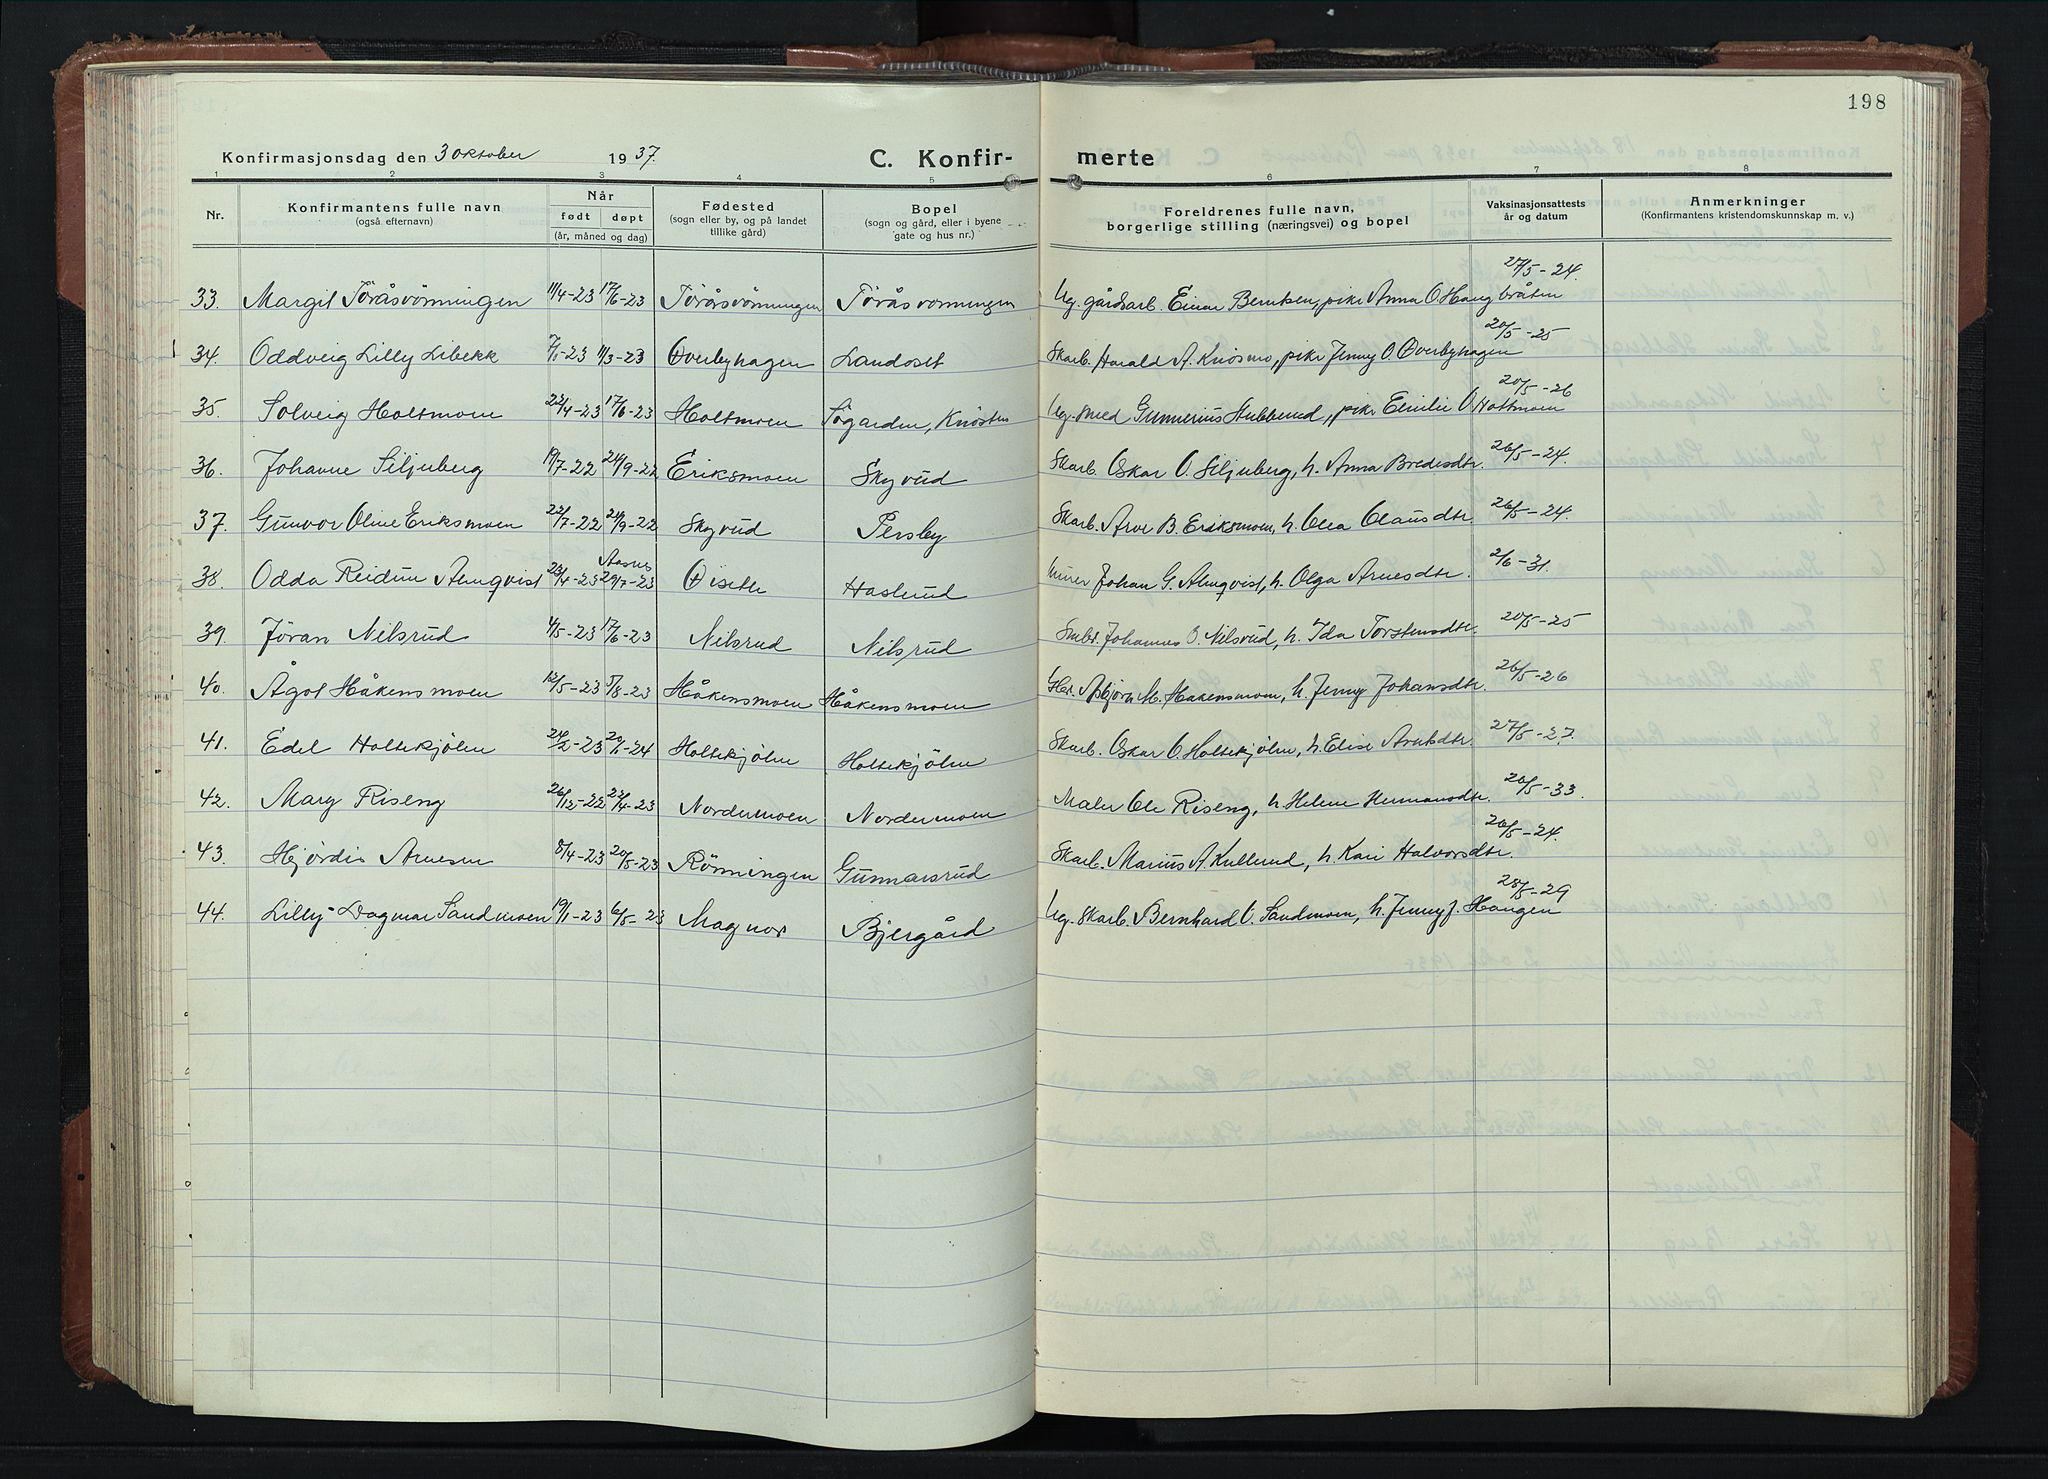 198
Konfirmasjonsdag den 3 oktober 1937. C. Konfir- merte
1 2 3 4 5 6 7 8
Nr. Konfirmantens fulle navn (også efternavn) Når født døpt (år, måned og dag) Fødested (sogn eller by, og på landet tillike gård) Bopel (sogn og gård, eller i byene gate og hus nr.) Foreldrenes fulle navn, borgerlige stilling (næringsvei) og bopel Vaksinasjonsattests år og datum Anmerkninger (Konfirmantens kristendomskunnskap m. v.)
33. Margit Töråsvönningen 11/4-23 17/6-23 Töråsvönningen Töråsvonningen Ug. gårdsarb. Einar Berntsen, pike Anna O. Haugbråten 27/5-24.
34. Oddveig Lilly Libekk 7/1-23 11/3-23 Overbyhagen Landoset Skarb. Harald A. Knösmo, pike Jenny O. Overbyhagen 20/5-25
35. Solveig Holtmoen 22/4-23 17/6-23 Holtmoen Sögarden, Knösten Ug. smed Gunnerius Stubberud, pike Emilie O. Holtmoen 20/5-26
36. Johanne Siljuberg 19/7-22 24/9-22 Eriksmoen Skyrud Skarb. Oskar O. Siljuberg, h. Anna Bredesdtr. 26/5-24.
37. Gunvor Oline Eriksmoen 22/7-22 24/9-22 Skyrud Persby Skarb. Arve B. Eriksmoen, h. Olea Olausdtr. 26/5-24.
38. Odda Reidun Almqvist 23/4-23 Aasnes 29/7-23 Öiseth Haslerud Murer Johan G. Almqvist, h. Olga Arnesdtr. 2/6-31.
39. Jöran Nilsrud 4/5-23 17/6-23 Nilsrud Nilsrud Smbr. Johannes O. Nilsrud, h. Ida Torstensdtr. 20/5-25
40. Ågot Håkensmoen 12/5-23 5/8-23 Håkensmoen Håkensmoen Gbr. Asbjörn M. Håkensmoen, h. Jenny Johansdtr. 26/5-26
41. Edel Holtekjölen 24/2-23 20/1-24 Holtekjölen Holtekjölen Skarb. Oskar O. Holtekjölen, h. Elise Arntsdtr. 27/5-27.
42. Mary Riseng 26/12-22 22/4-23 Nordermoen Nordermoen Maler Ole Riseng, h. Helene Hermansdtr. 20/5-33.
43. Hjördis Arnesen 8/4-23 20/5-23 Rönningen Gunnarsrud Skarb. Marius A. Kullerud, h. Kari Halvorsdtr. 26/5-24.
44. Lilly Dagmar Sandmoen 19/1-23 6/5-23 Magnor Bjergård Ug. skarb. Bernhard O. Sandmoen, h. Jenny J. Haugen 28/5-29